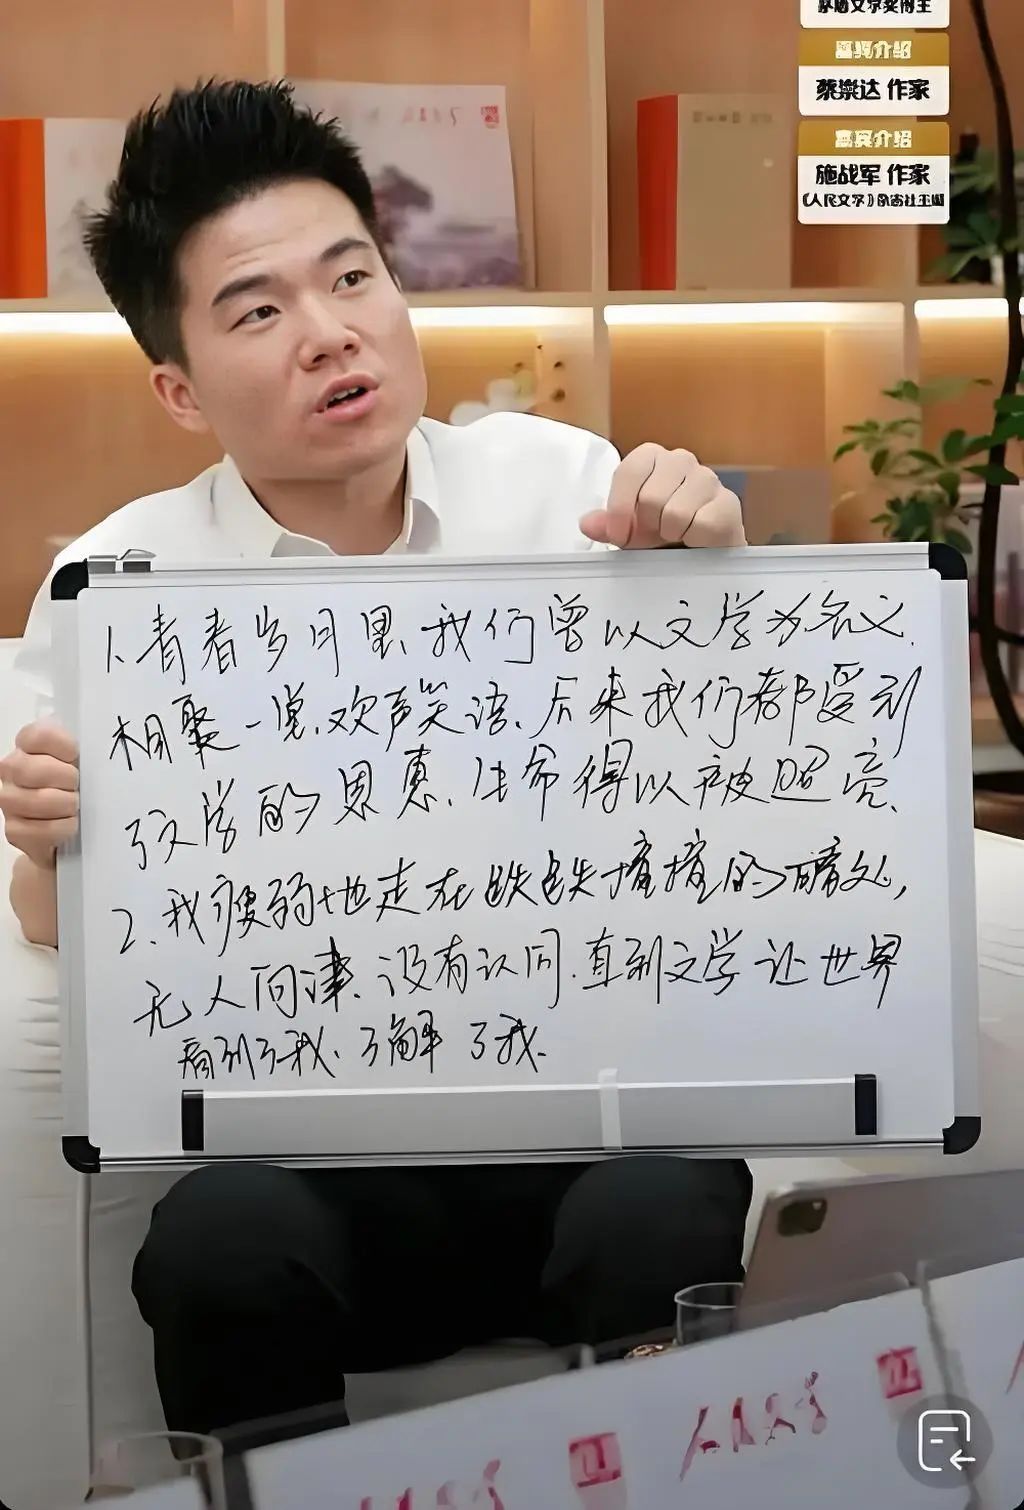 茅盾文学奖得主
嘉宾介绍
蔡崇达 作家
嘉宾介绍
施战军 作家
《人民文学》杂志社主编
1、青春岁月里、我们曾以文学为名义、
相聚一堂、欢声笑语、后来我们都受到
了文学的恩惠、生命得以被照亮、
2、我疲弱地走在跌跌撞撞的暗处,
无人问津、没有认同、直到文学 让世界
看到了我、了解 了我、
人民文学